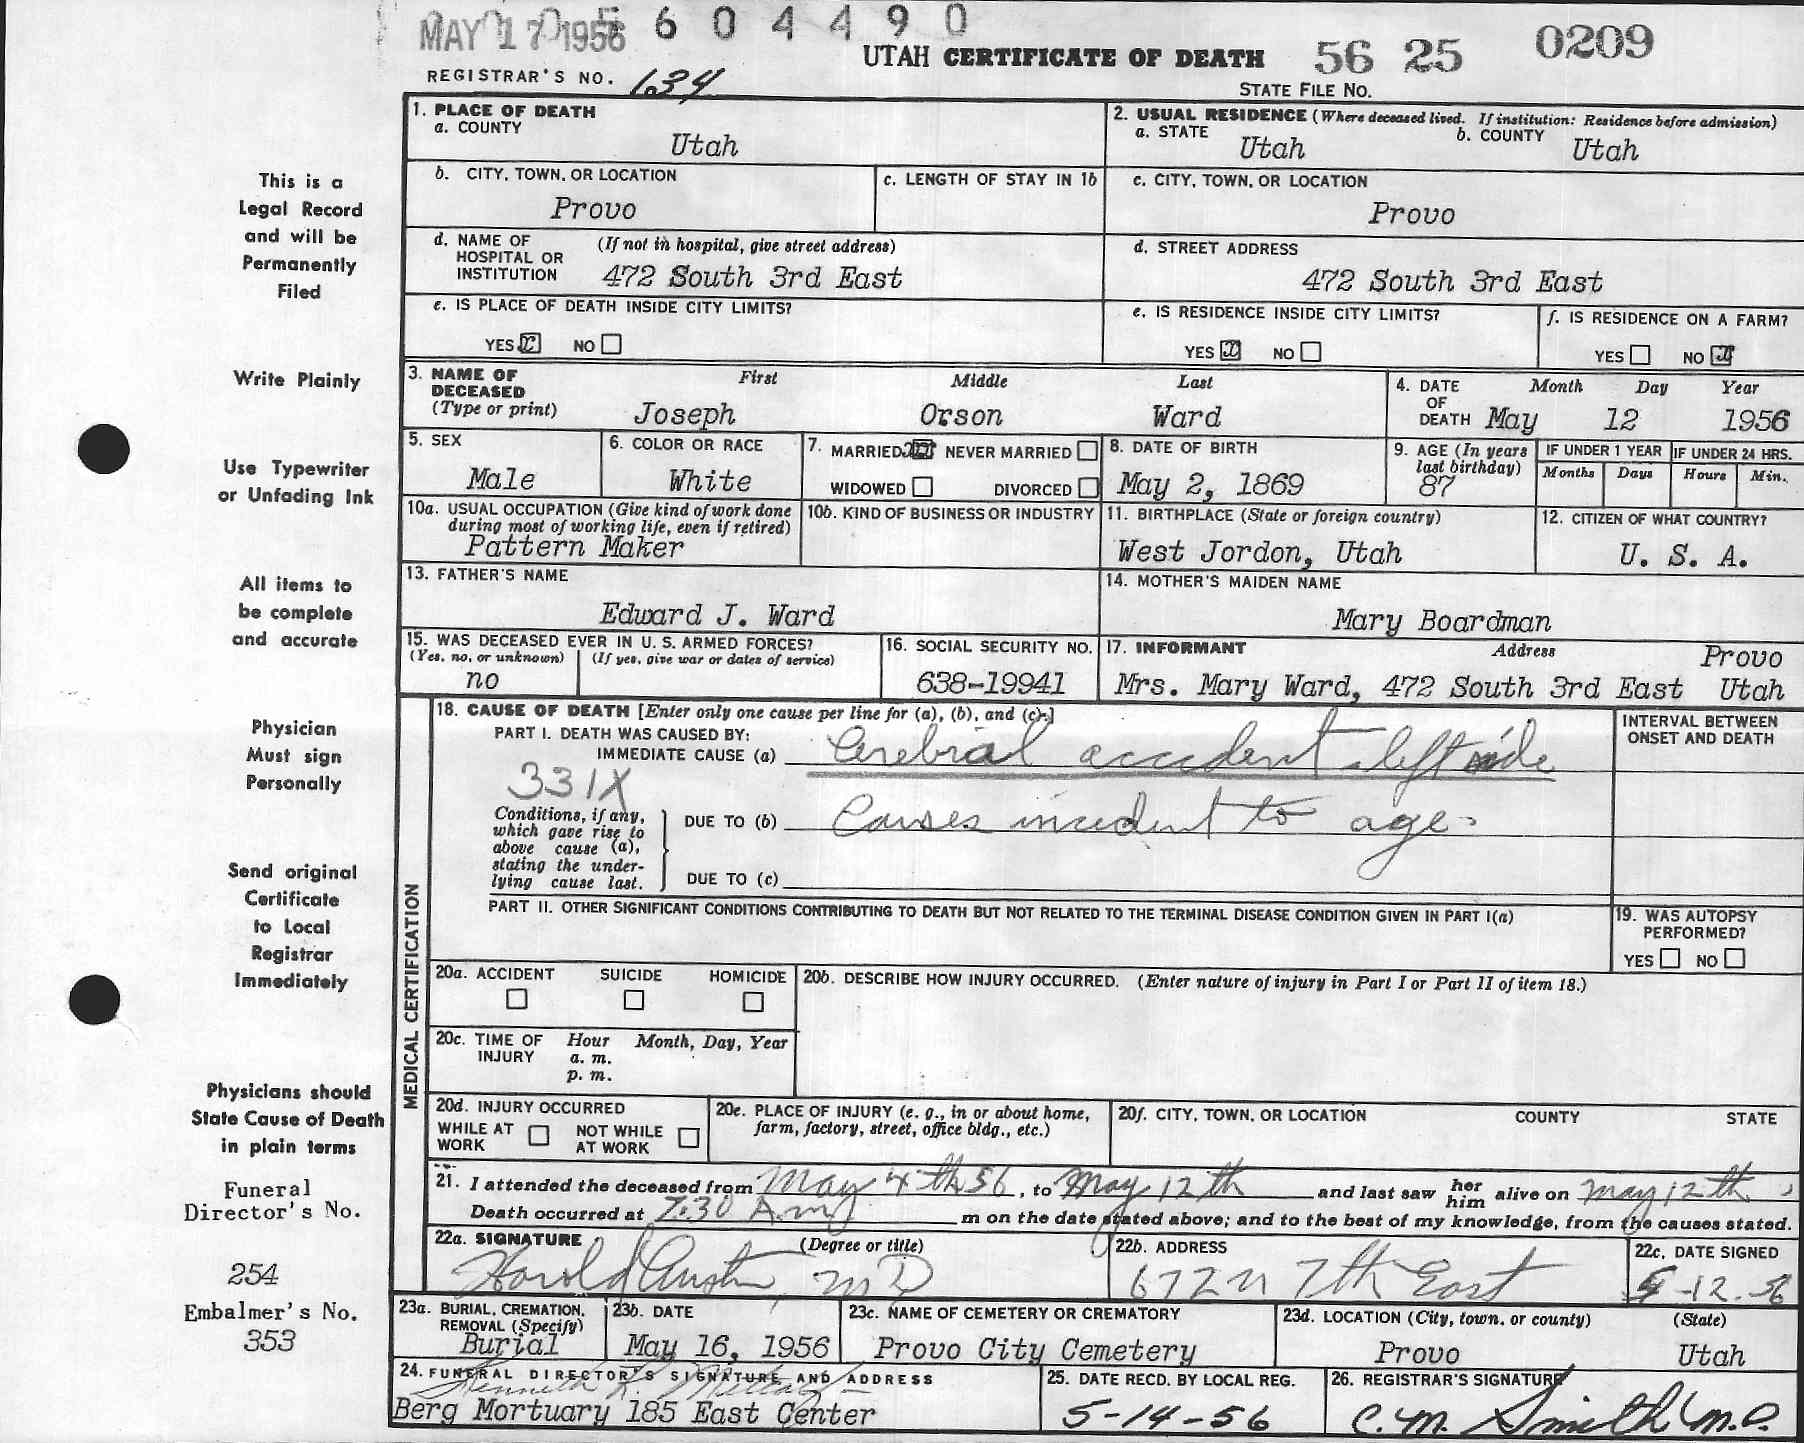 MAY 17 1956 5604490
UTAH CERTIFICATE OF DEATH 56 25 0209
REGISTRAR'S NO. 134
STATE FILE NO.
1. PLACE OF DEATH
a. COUNTY
Utah
2. USUAL RESIDENCE (Where deceased lived. If institution: Residence before admission)
a. STATE Utah b. COUNTY Utah
b. CITY, TOWN, OR LOCATION
Provo
c. LENGTH OF STAY IN 1b
c. CITY, TOWN, OR LOCATION
Provo
d. NAME OF (If not in hospital, give street address)
HOSPITAL OR
INSTITUTION 472 South 3rd East
d. STREET ADDRESS
472 South 3rd East
e. IS PLACE OF DEATH INSIDE CITY LIMITS?
YES x NO
e. IS RESIDENCE INSIDE CITY LIMITS?
YES x NO
f. IS RESIDENCE ON A FARM?
YES NO x
3. NAME OF First Middle Last
DECEASED
(Type or print) Joseph Orson Ward
4. DATE Month Day Year
OF
DEATH May 12 1956
5. SEX
Male
6. COLOR OR RACE
White
7. MARRIED x NEVER MARRIED
WIDOWED DIVORCED
8. DATE OF BIRTH
May 2, 1869
9. AGE (In years
last birthday)
87
IF UNDER 1 YEAR IF UNDER 24 HRS.
Months Days Hours Min.
10a. USUAL OCCUPATION (Give kind of work done
during most of working life, even if retired)
Pattern Maker
10b. KIND OF BUSINESS OR INDUSTRY
11. BIRTHPLACE (State or foreign country)
West Jordon, Utah
12. CITIZEN OF WHAT COUNTRY?
U. S. A.
13. FATHER'S NAME
Edward J. Ward
14. MOTHER'S MAIDEN NAME
Mary Boardman
15. WAS DECEASED EVER IN U. S. ARMED FORCES?
(Yes, no, or unknown) (If yes, give war or dates of service)
no
16. SOCIAL SECURITY NO.
638-19941
17. INFORMANT Address Provo
Mrs. Mary Ward, 472 South 3rd East Utah
18. CAUSE OF DEATH [Enter only one cause per line for (a), (b), and (c).]
PART I. DEATH WAS CAUSED BY:
IMMEDIATE CAUSE (a) Cerebrial accident - left side
331X
Conditions, if any,
which gave rise to
above cause (a),
stating the under-
lying cause last.
DUE TO (b) Causes incident to age.
DUE TO (c)
INTERVAL BETWEEN
ONSET AND DEATH
PART II. OTHER SIGNIFICANT CONDITIONS CONTRIBUTING TO DEATH BUT NOT RELATED TO THE TERMINAL DISEASE CONDITION GIVEN IN PART I(a)
19. WAS AUTOPSY
PERFORMED?
YES NO
MEDICAL CERTIFICATION
20a. ACCIDENT SUICIDE HOMICIDE
20b. DESCRIBE HOW INJURY OCCURRED. (Enter nature of injury in Part I or Part II of item 18.)
20c. TIME OF Hour Month, Day, Year
INJURY a. m.
p. m.
20d. INJURY OCCURRED
WHILE AT NOT WHILE
WORK AT WORK
20e. PLACE OF INJURY (e. g., in or about home,
farm, factory, street, office bldg., etc.)
20f. CITY, TOWN, OR LOCATION COUNTY STATE
21. I attended the deceased from May 4th 56, to May 12th and last saw her him alive on May 12th
Death occurred at 7:30 A.m m on the date stated above; and to the best of my knowledge, from the causes stated.
22a. SIGNATURE (Degree or title)
Harold Austin, MD
22b. ADDRESS
672 N 7th East
22c. DATE SIGNED
5-12-56
23a. BURIAL, CREMATION,
REMOVAL (Specify)
Burial
23b. DATE
May 16, 1956
23c. NAME OF CEMETERY OR CREMATORY
Provo City Cemetery
23d. LOCATION (City, town, or county) (State)
Provo Utah
24. FUNERAL DIRECTOR'S SIGNATURE AND ADDRESS
Berg Mortuary 185 East Center
25. DATE RECD. BY LOCAL REG.
5-14-56
26. REGISTRAR'S SIGNATURE
C. M. Smith M.D.
This is a
Legal Record
and will be
Permanently
Filed
Write Plainly
Use Typewriter
or Unfading Ink
All items to
be complete
and accurate
Physician
Must sign
Personally
Send original
Certificate
to Local
Registrar
Immediately
Physicians should
State Cause of Death
in plain terms
Funeral
Director's No.
254
Embalmer's No.
353